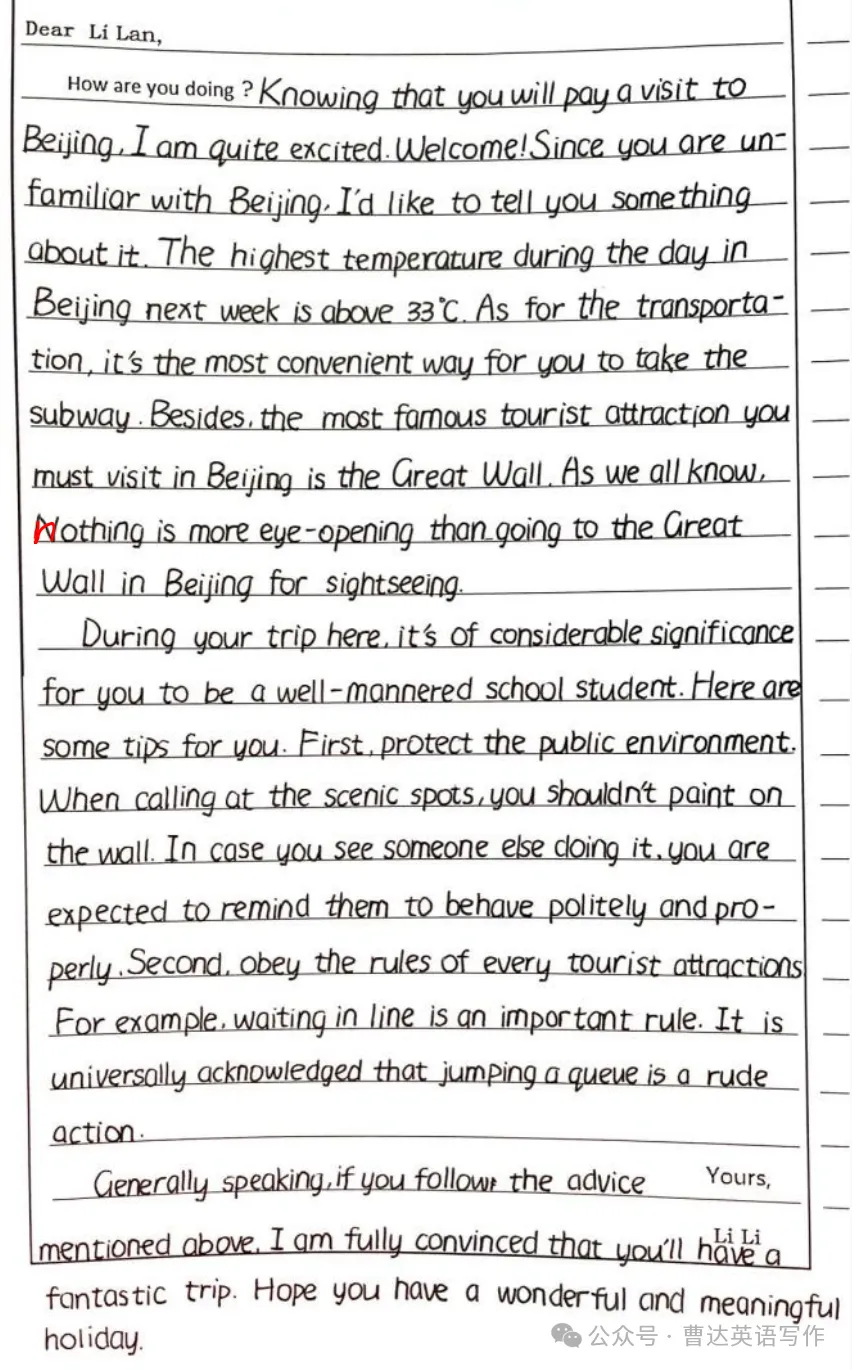 Dear Li Lan,
How are you doing ? Knowing that you will pay a visit to
Beijing, I am quite excited. Welcome! Since you are un-
familiar with Beijing, I'd like to tell you something
about it. The highest temperature during the day in
Beijing next week is above 33℃. As for the transporta-
tion, it's the most convenient way for you to take the
subway. Besides, the most famous tourist attraction you
must visit in Beijing is the Great Wall. As we all know,
nothing is more eye-opening than going to the Great
Wall in Beijing for sightseeing.
During your trip here, it's of considerable significance
for you to be a well-mannered school student. Here are
some tips for you. First, protect the public environment.
When calling at the scenic spots, you shouldn't paint on
the wall. In case you see someone else doing it, you are
expected to remind them to behave politely and pro-
perly. Second, obey the rules of every tourist attractions
For example, waiting in line is an important rule. It is
universally acknowledged that jumping a queue is a rude
action.
Generally speaking, if you follow the advice
Yours,
mentioned above, I am fully convinced that you'll have a
Li Li
fantastic trip. Hope you have a wonderful and meaningful
holiday.
公众号 · 曹达英语写作